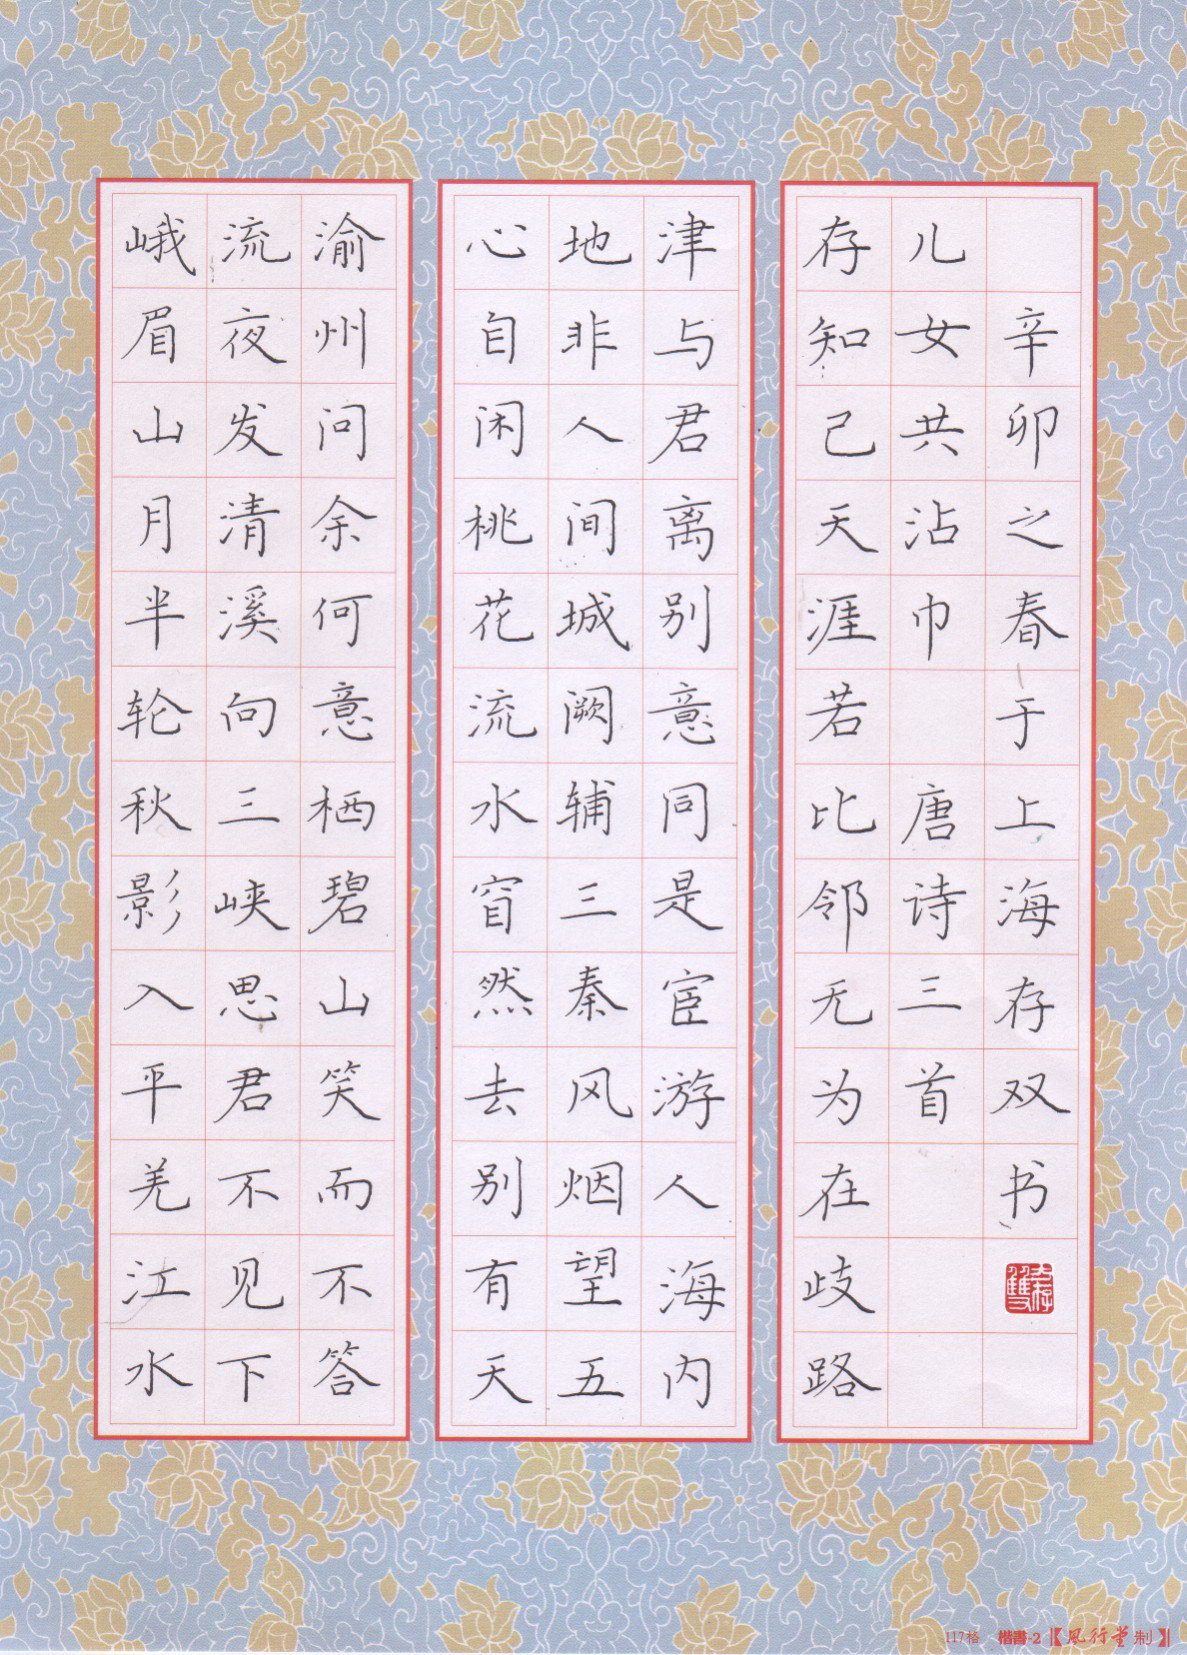 峨眉山月半轮秋影入平羌江水
流夜发清溪向三峡思君不见下
渝州问余何意栖碧山笑而不答
心自闲桃花流水窅然去别有天
地非人间城阙辅三秦风烟望五
津与君离别意同是宦游人海内
存知己天涯若比邻无为在歧路
儿女共沾巾 唐诗三首
辛卯之春于上海存双书
117格 楷書-2【風行堂制】